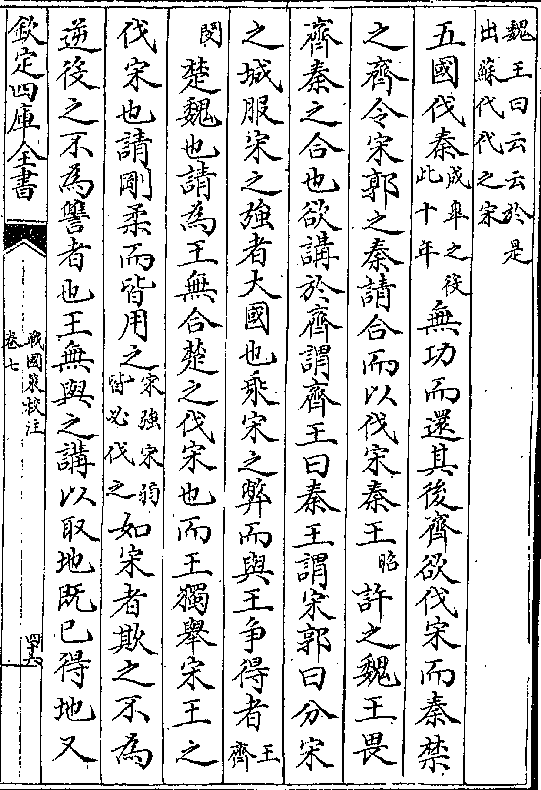 魏王曰云云於是
出蘇代代之宋
五國伐秦成睾之役此十年無功而還其後齊欲伐宋而秦禁
之齊令宋郭之秦請合而以伐宋秦王昭許之魏王畏
齊秦之合也欲講於齊謂齊王曰秦王謂宋郭曰分宋
之城服宋之強者大國也乘宋之弊而與王爭得者王齊
閔楚魏也請為王無合楚之伐宋也而王獨舉宋王之
伐宋也請剛柔而皆用之宋強宋弱皆必伐之如宋者欺之不為
逆役之不為讐者也王無與之講以取地既已得地又
欽定四庫全書
戰國策校注
卷七
四十六